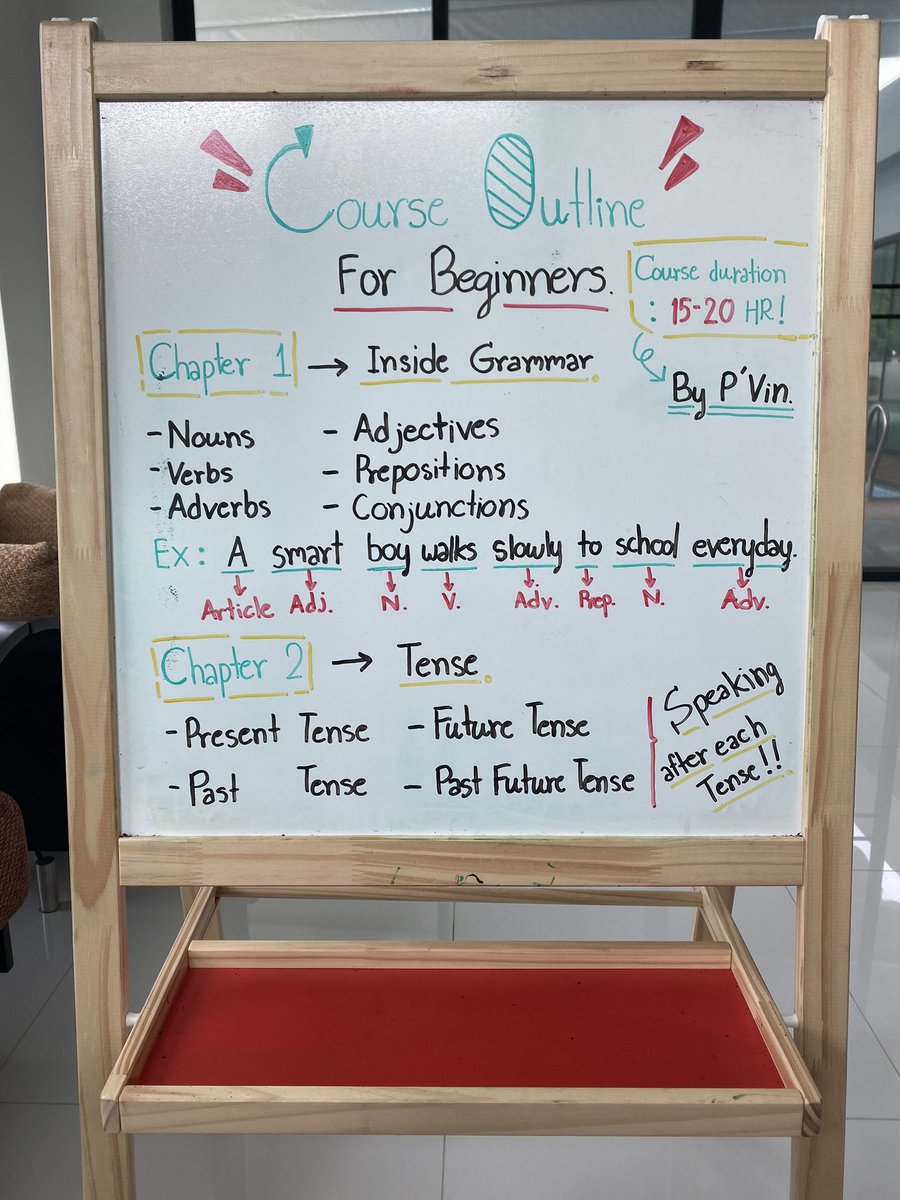 Course Outline
For Beginners.
Course duration
: 15-20 HR!
By P'Vin.
Chapter 1 → Inside Grammar.
- Nouns - Adjectives
- Verbs - Prepositions
- Adverbs - Conjunctions
Ex: A smart boy walks slowly to school everyday.
Article Adj. N. V. Adv. Prep. N. Adv.
Chapter 2 → Tense.
- Present Tense - Future Tense
- Past Tense - Past Future Tense
Speaking
after each
Tense!!